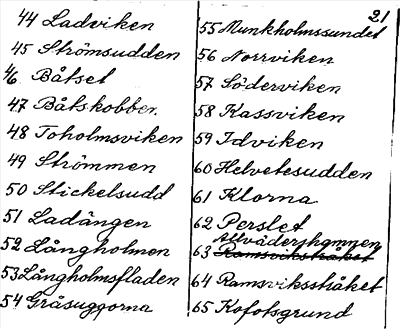 21
44 Ladviken
45 Strömsudden
46 Båtsel
47 Båtskobber.
48 Toholmsviken
49 Strömmen
50 Stickelsudd
51 Ladängen
52 Långholmen
53 Långholmsfladen
54 Gråsuggorna
55 Munkholmssundet
56 Norrviken
57 Söderviken
58 Kassviken
59 Idviken
60 Helvetesudden
61 Klorna
62 Perslet
Allvädershamnen
63 Ramsviksstråket
64 Ramsviksstråket
65 Kofotsgrund